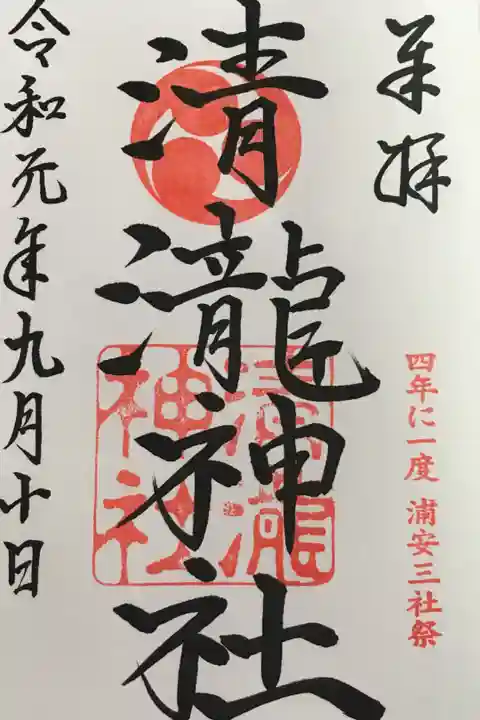 奉拝
四年に一度 浦安三社祭
清瀧神社
清瀧
神社
令和元年九月十日